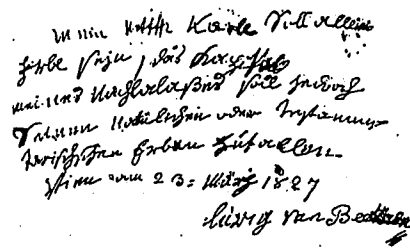 Mein Neffe Karl Soll alleini
Erbe sejn, das Kapital
meines Nachlalaßes soll jedoch
Seinen natürlichen oder testamen-
tarischschen Erben zufallen
Wien am 23= März 1827
luwig van Beethoven